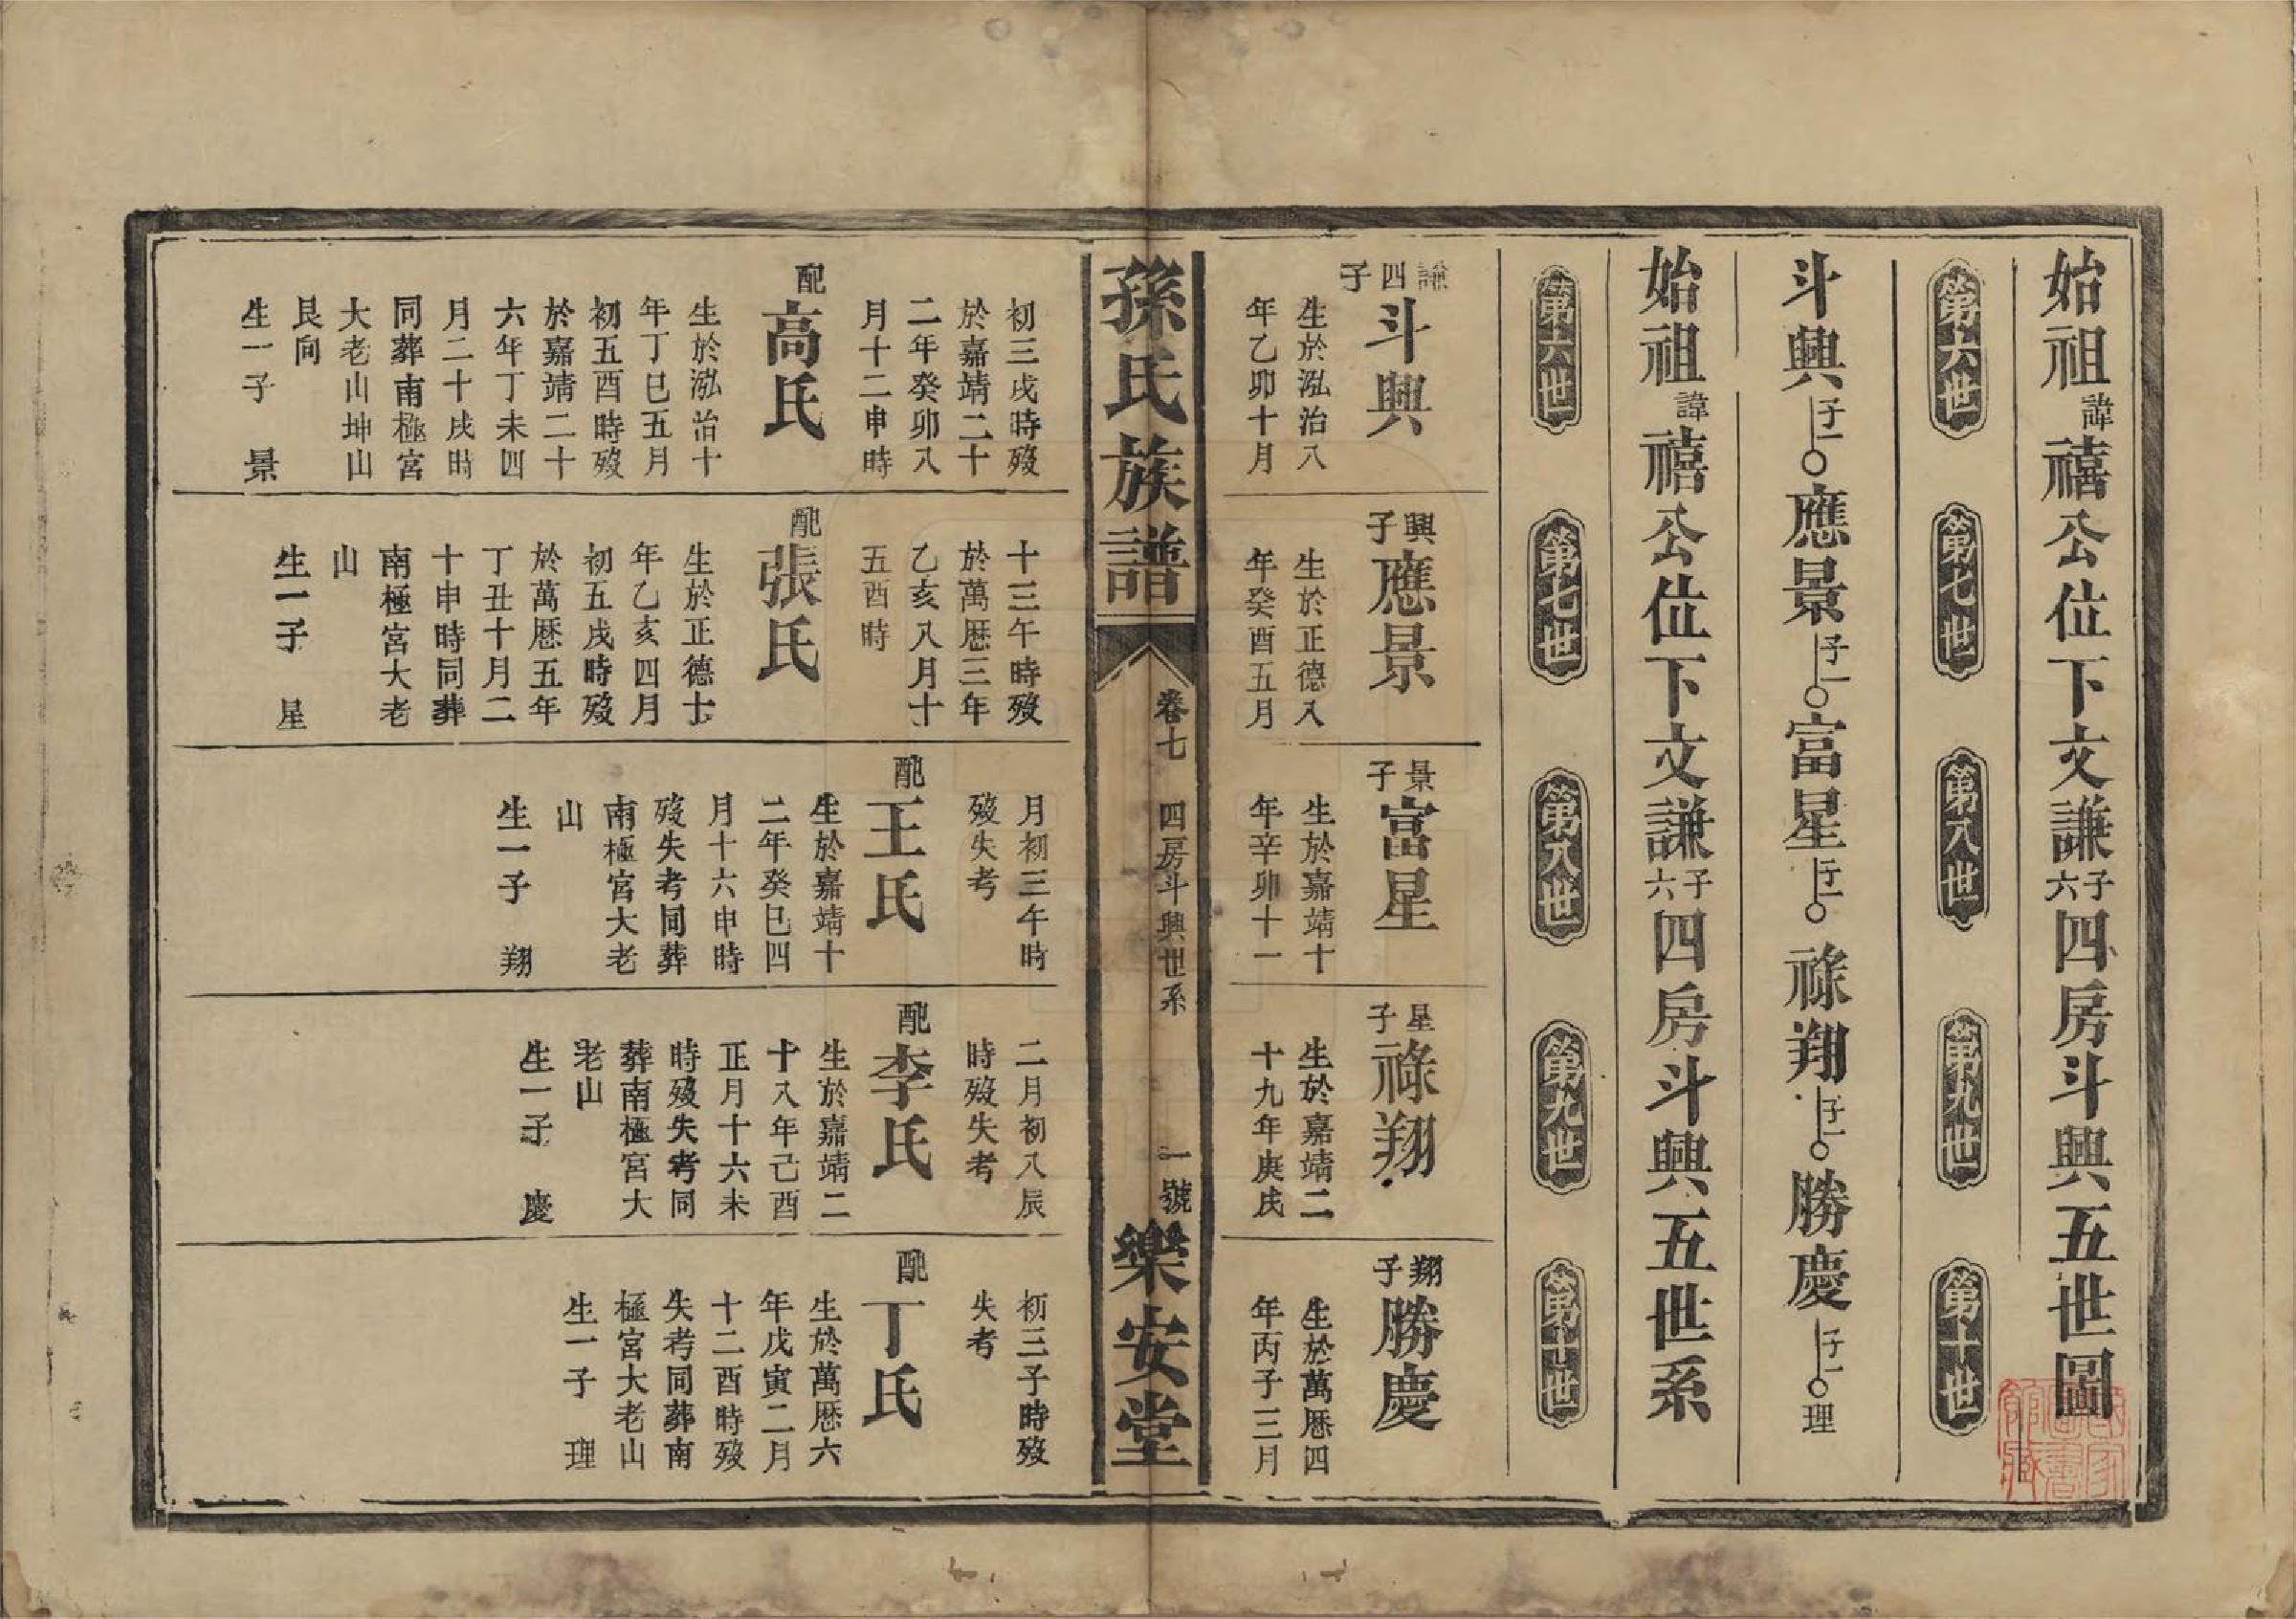 始祖諱禧公位下文謙子六四房斗興五世圖
第六世 第七世 第八世 第九世 第十世
斗興子一應景子一富星子一祿翔子一勝慶子一理
始祖諱禧公位下文謙子六四房斗興五世系
第六世 第七世 第八世 第九世 第十世
謙四子斗興
生於泓治八
年乙卯十月
初三戌時歿
於嘉靖二十
二年癸卯八
月十二申時
配高氏
生於泓治十
年丁巳五月
初五酉時歿
於嘉靖二十
六年丁未四
月二十戌時
同葬南極宮
大老山坤山
艮向
生一子 景
興子應景
生於正德八
年癸酉五月
十三午時歿
於萬歷三年
乙亥八月十
五酉時
配張氏
生於正德十
年乙亥四月
初五戌時歿
於萬歷五年
丁丑十月二
十申時同葬
南極宮大老
山
生一子 星
景子富星
生於嘉靖十
年辛卯十一
月初三午時
歿失考
配王氏
生於嘉靖十
二年癸巳四
月十六申時
歿失考同葬
南極宮大老
山
生一子 翔
星子祿翔
生於嘉靖二
十九年庚戌
二月初八辰
時歿失考
配李氏
生於嘉靖二
十八年己酉
正月十六未
時歿失考同
葬南極宮大
老山
生一子 慶
翔子勝慶
生於萬歷四
年丙子三月
初三子時歿
失考
配丁氏
生於萬歷六
年戊寅二月
十二酉時歿
失考同葬南
極宮大老山
生一子 理
孫氏族譜
卷七 四房斗興世系 一號
樂安堂